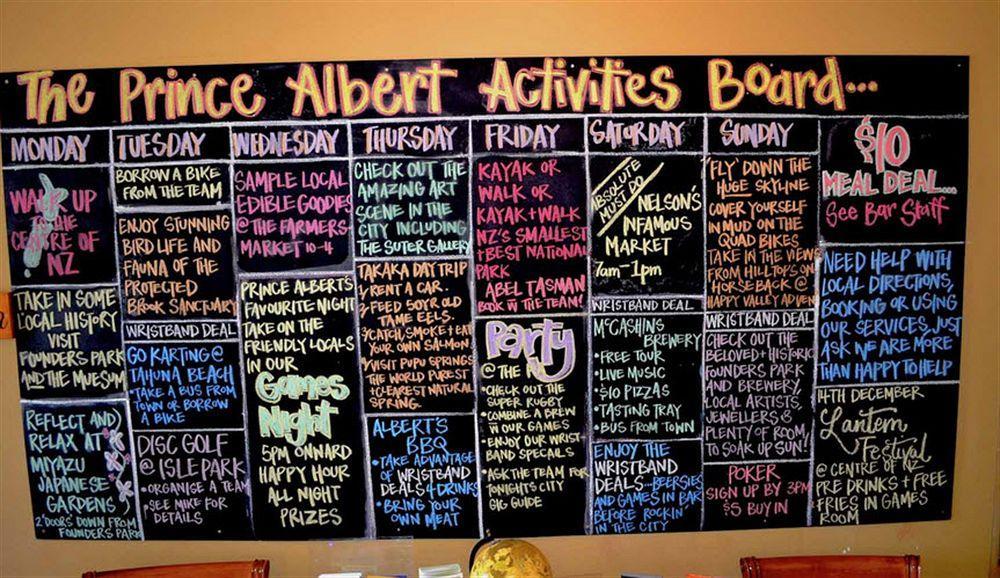 The Prince Albert Activities Board...
MONDAY
WALK UP
TO THE
CENTRE OF
NZ
TAKE IN SOME
LOCAL HISTORY
VISIT
FOUNDERS PARK
AND THE MUESUM
REFLECT AND
RELAX AT
MIYAZU
JAPANESE
GARDENS
2 DOORS DOWN FROM
FOUNDERS PARK
TUESDAY
BORROW A BIKE
FROM THE TEAM
ENJOY STUNNING
BIRD LIFE AND
FAUNA OF THE
PROTECTED
BROOK SANCTUARY
WRISTBAND DEAL
GO KARTING @
TAHUNA BEACH
- TAKE A BUS FROM
TOWN OR BORROW
A BIKE
DISC GOLF
@ ISLE PARK
• ORGANISE A TEAM
• SEE MIKE FOR
DETAILS
WEDNESDAY
SAMPLE LOCAL
EDIBLE GOODIES
@ THE FARMERS
MARKET 10-4
PRINCE ALBERT'S
FAVOURITE NIGHT
TAKE ON THE
FRIENDLY LOCALS
IN OUR
Games
Night
5PM ONWARD
HAPPY HOUR
ALL NIGHT
PRIZES
THURSDAY
CHECK OUT THE
AMAZING ART
SCENE IN THE
CITY INCLUDING
THE SUTER GALLERY
TAKAKA DAY TRIP
1 RENT A CAR.
2 FEED 50YR OLD
TAME EELS.
3 CATCH, SMOKE + EAT
YOUR OWN SALMON.
VISIT PUPU SPRINGS
THE WORLD PUREST
+ CLEAREST NATURAL
SPRING.
ALBERT'S
BBQ
• TAKE ADVANTAGE
OF WRISTBAND
DEALS 4 DRINKS
• BRING YOUR
OWN MEAT
FRIDAY
KAYAK OR
WALK OR
KAYAK + WALK
NZ'S SMALLEST
+ BEST NATIONAL
PARK
ABEL TASMAN
BOOK W THE TEAM!
Party
@ THE
• CHECK OUT THE
SUPER RUGBY
• COMBINE A BREW
W OUR GAMES
• ENJOY OUR WRIST-
BAND SPECIALS
• ASK THE TEAM FOR
TONIGHTS CITY
GIG GUIDE
SATURDAY
ABSOLUTE
MUST DO
NELSON'S
INFAMOUS
MARKET
7am-1pm
WRISTBAND DEAL
McCASHINS
BREWERY
• FREE TOUR
• LIVE MUSIC
• $10 PIZZAS
• TASTING TRAY
• BUS FROM TOWN
ENJOY THE
WRISTBAND
DEALS... BEERSIES
AND GAMES IN BAR
BEFORE ROCKIN'
IN THE CITY
SUNDAY
'FLY' DOWN THE
HUGE SKYLINE
COVER YOURSELF
IN MUD ON THE
QUAD BIKES
TAKE IN THE VIEWS
FROM HILLTOPS ON
HORSEBACK @
HAPPY VALLEY ADVEN
WRISTBAND DEAL
CHECK OUT THE
BELOVED + HISTORIC
FOUNDERS PARK
AND BREWERY,
LOCAL ARTISTS,
JEWELLERS &
PLENTY OF ROOM
TO SOAK UP SUN!
POKER
SIGN UP BY 3PM
$5 BUY IN
$10
MEAL DEAL...
See Bar Staff
NEED HELP WITH
LOCAL DIRECTIONS,
BOOKING OR USING
OUR SERVICES, JUST
ASK WE ARE MORE
THAN HAPPY TO HELP
14TH DECEMBER
Lantern
Festival
@ CENTRE OF NZ
PRE DRINKS + FREE
FRIES IN GAMES
ROOM